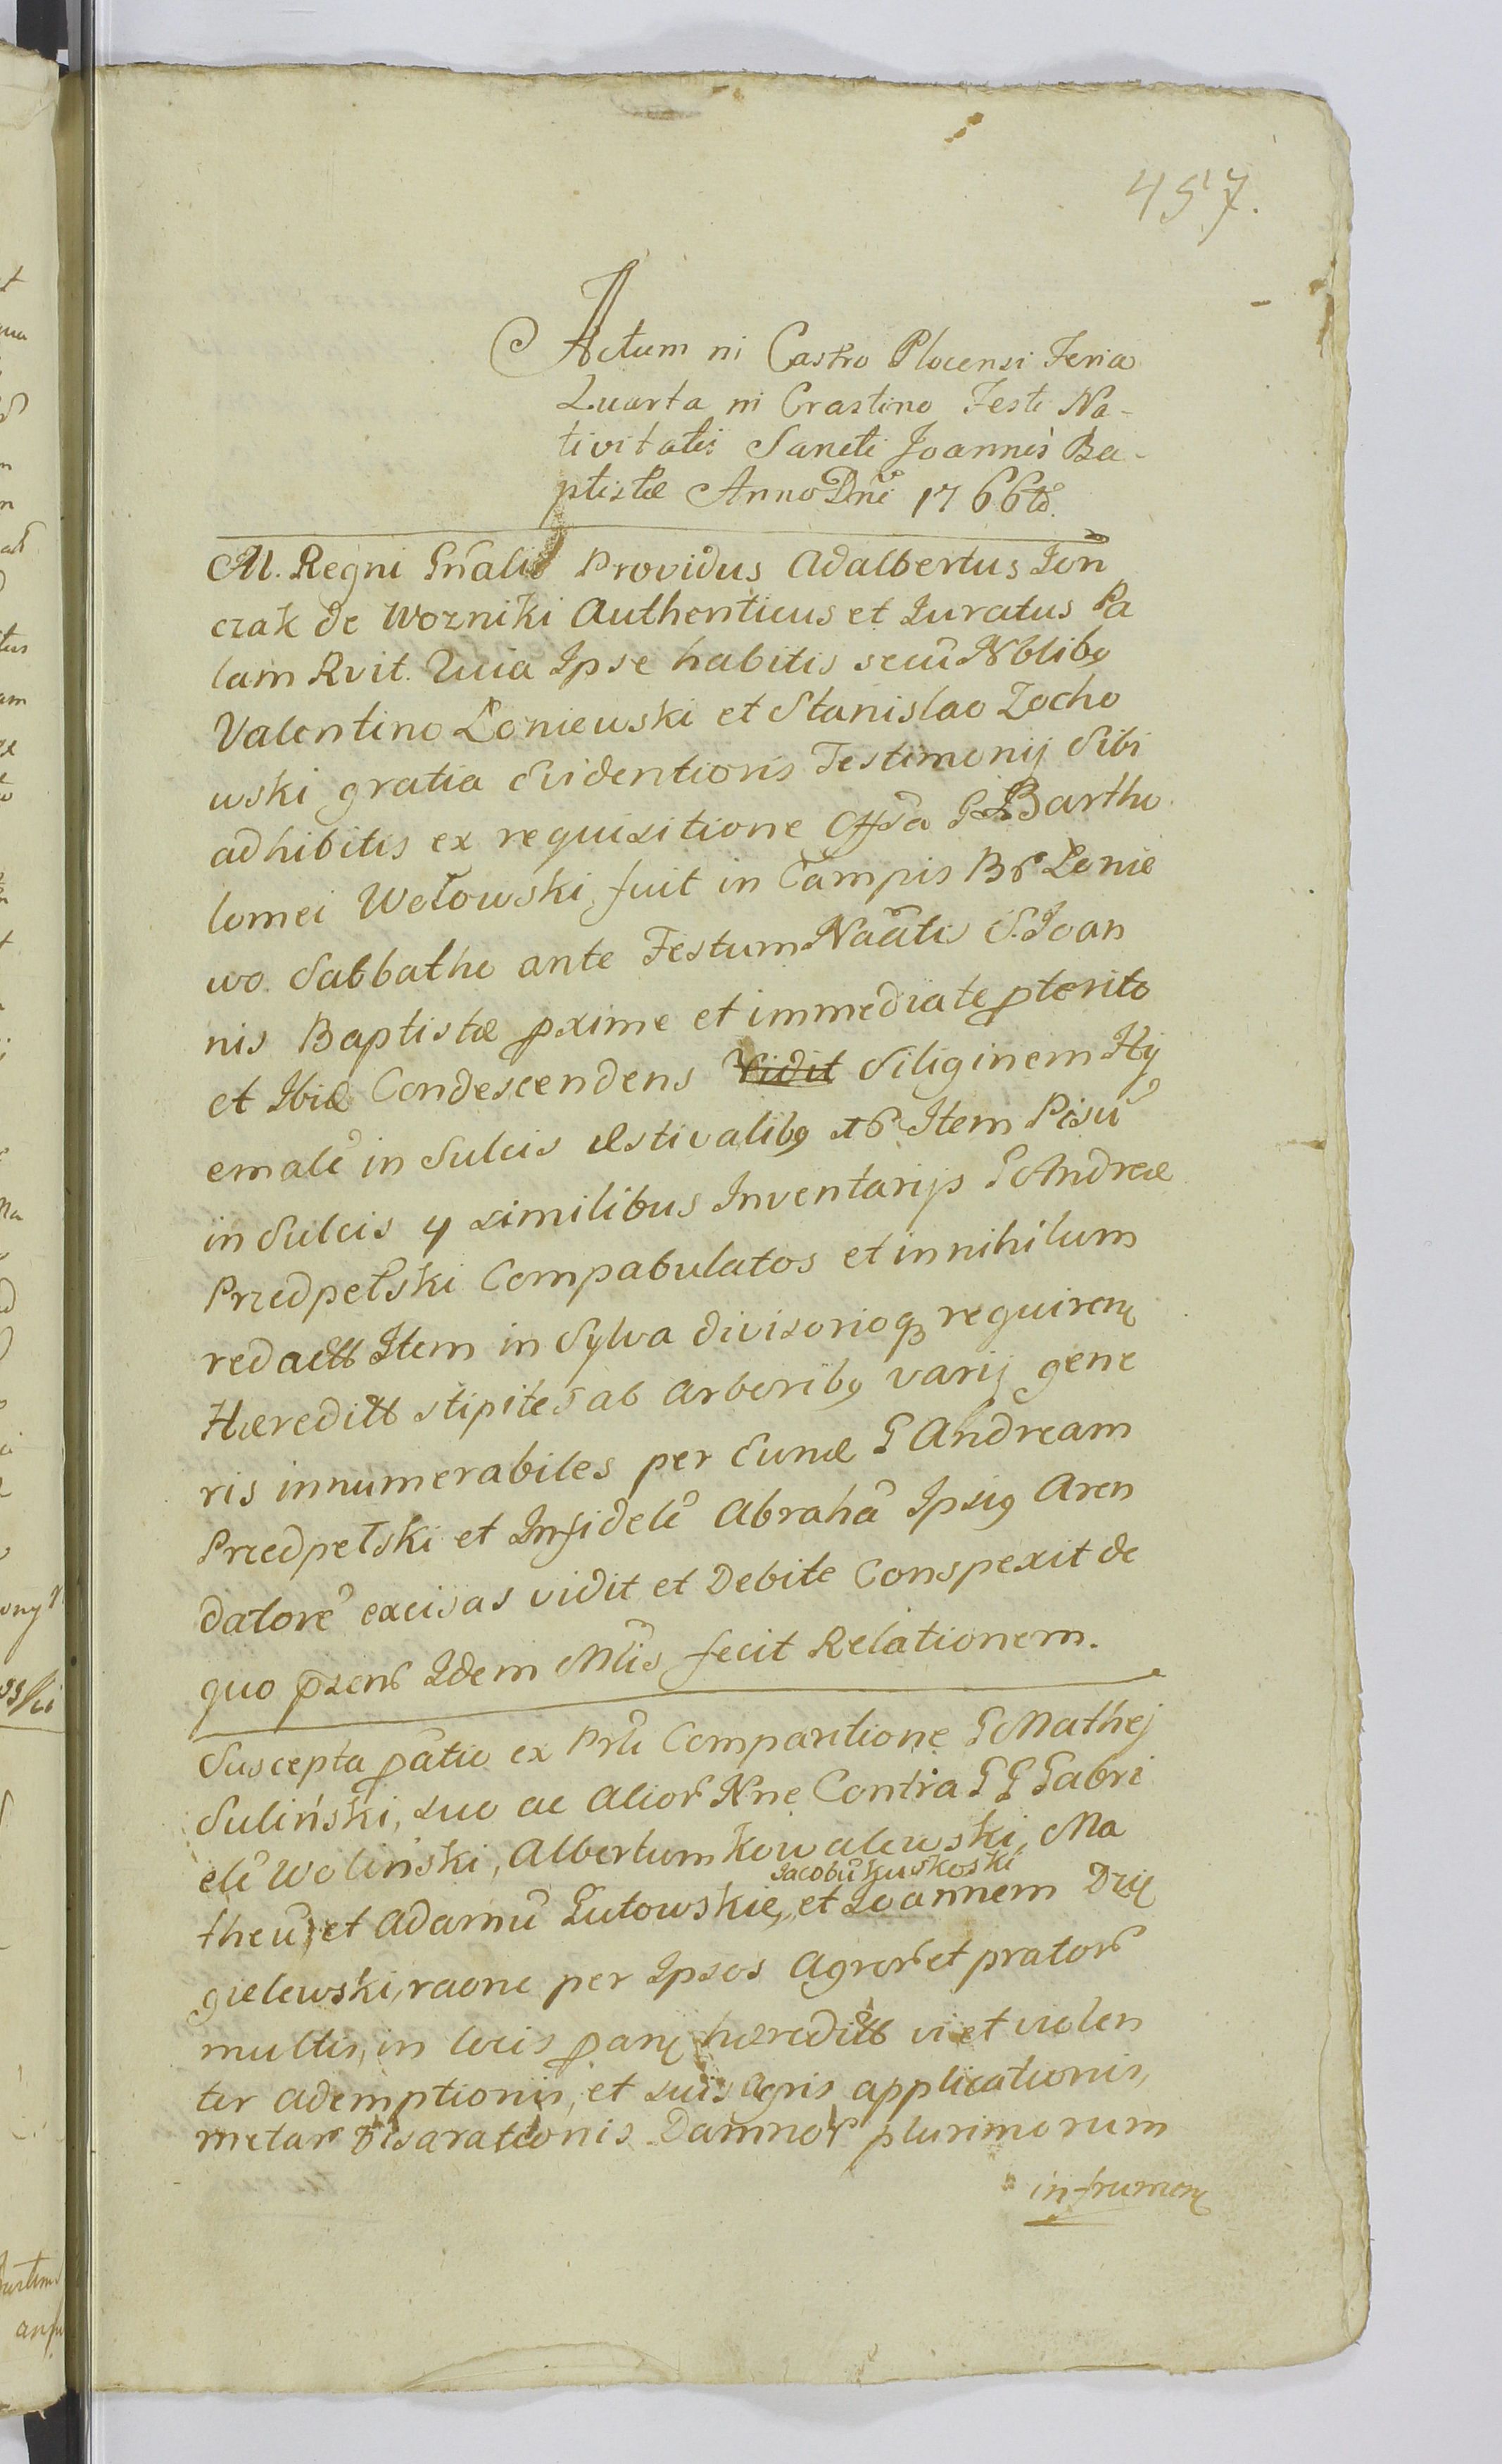 457.
Actum in Castro Plocensi Feria
Quarta in Crastino Festi Na-
tivitatis Sancti Joannis Ba-
ptistæ Anno Dni 1766to.
M. Regni Gnalis Providus Adalbertus Jon
czak de Wozniki Authenticus et Juratus Pa
lam Rvit. Quia Ipse habitis secũ Nblibq
Valentino Łoniewski et Stanislao Zocho
wski gratia Evidentioris Testimonij Sibi
adhibitis ex requisitione Offsa G Bartho
lomei Wołowski, fuit in Campis Br Łonie
wo. Sabbatho ante Festum Naâtis S. Joan
nis Baptistæ pxime et immediate pterito
et Ibid Condescendens Vidit Siliginem Hy
emalẽ in Sulcis æstivalibq 16 Item Pisũ
in Sulcis 4 similibus Inventarijs G Andreæ
Przedpełski Compabulatos et in nihilum
redactt Item in Sylva divisorioq requiren
Hæreditt stipites ab Arboribq varij gene
ris innumerabiles per Eund G Andream
Przedpełski et Infidelẽ Abrahã Ipsiq Aren
datorẽ excisas vidit et Debite Conspexit de
quo pzens Idem Mlis fecit Relationem.
Suscepta ptatio ex Prli Comparitione G Mathej
Suliński, suo ac Alior Nne Contra G G Gabri
elẽ Woliński, Albertum Kowalewski, Ma
Jacobũ Kuskoski
theũ, et Adamũ Gutowskie, et Joannem Dzię
gielewski, raone per Ipsos Agror et prator
multis, in locis pan hæreditt vi et violen
ter ademptionis, et suis Agris applicationis,
metar Disarationis Damnor plurimorum
in frumen